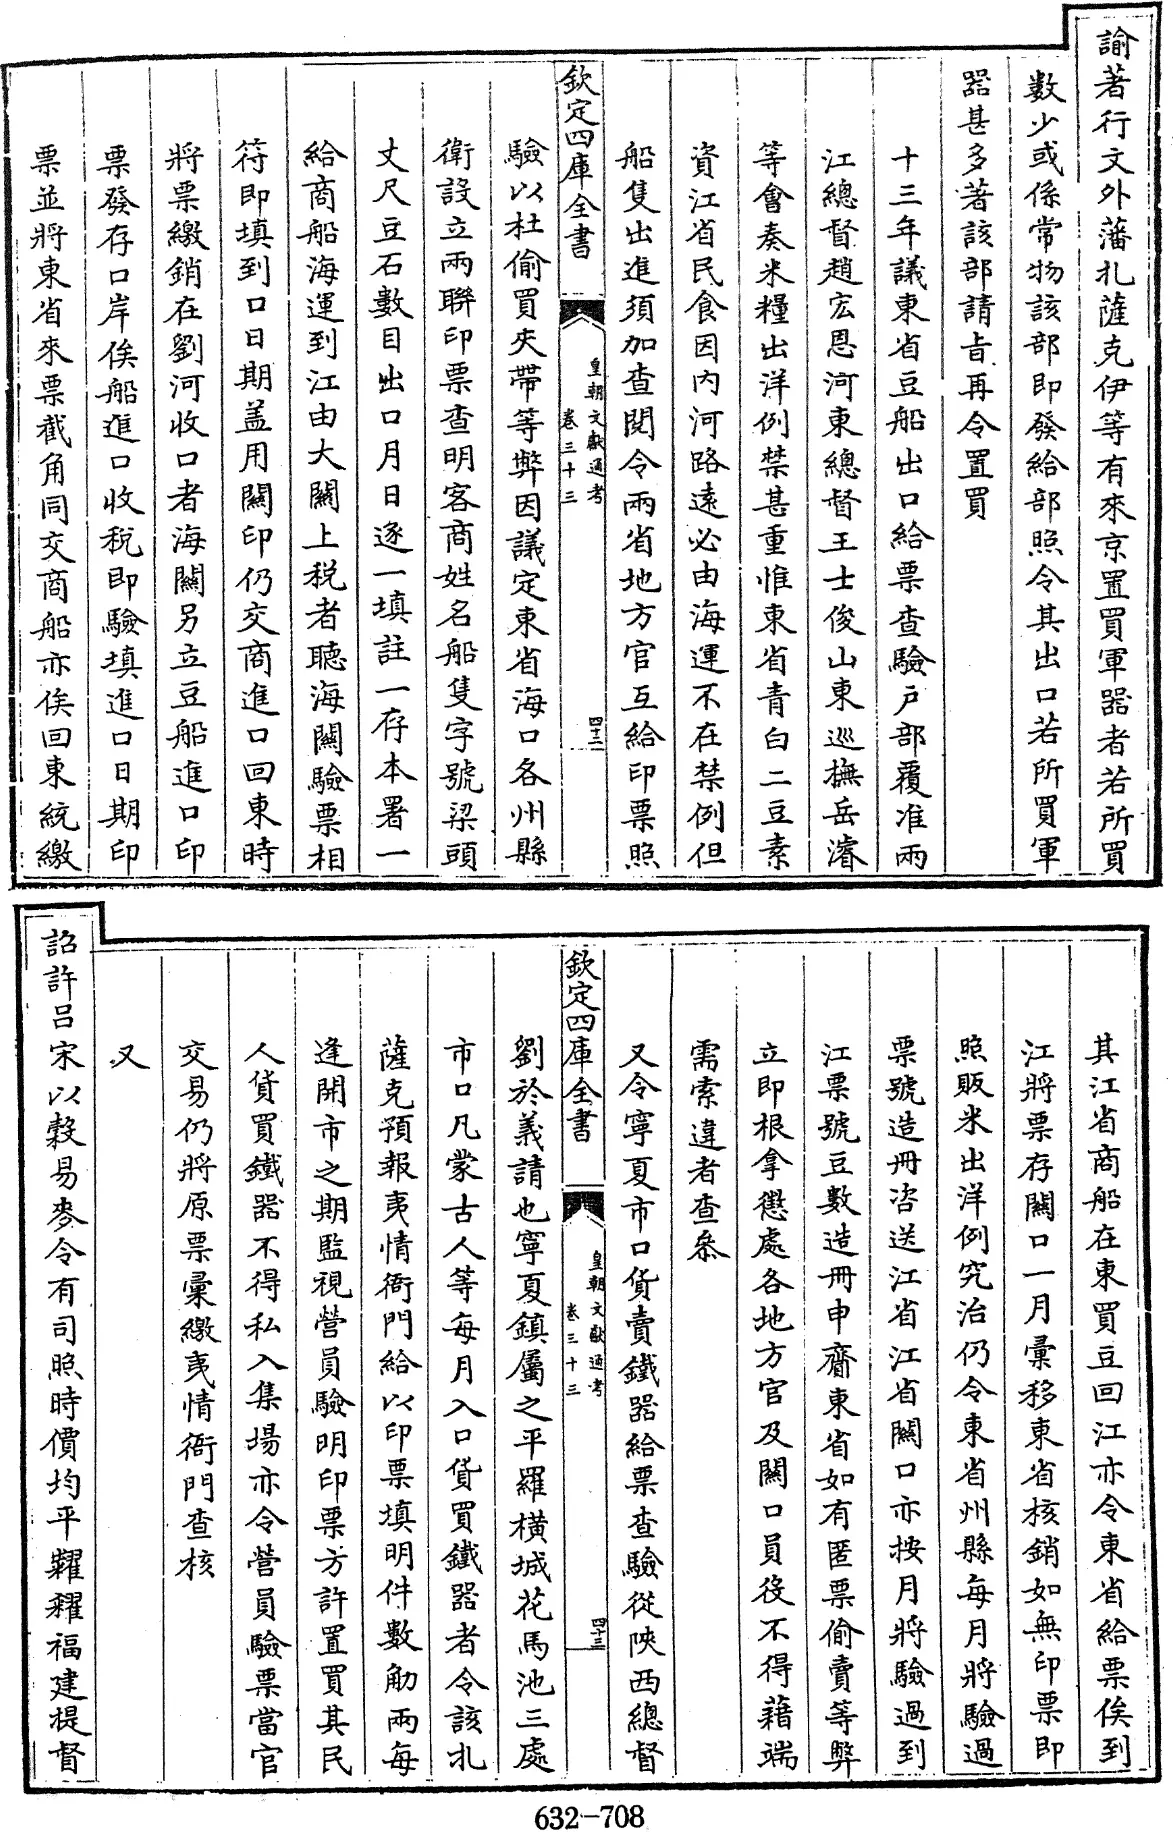 諭著行文外藩扎薩克伊等有來京置買軍器者若所買
數少或係常物該部即發給部照令其出口若所買軍
器甚多著該部請旨再令置買
十三年議東省豆船出口給票查驗戶部覆准兩
江總督趙宏恩河東總督王士俊山東巡撫岳濬
等會奏米糧出洋例禁甚重惟東省青白二豆素
資江省民食因内河路遠必由海運不在禁例但
船隻出進須加查閱令兩省地方官互給印票照
欽定四庫全書
皇朝文獻通考
卷三十三
四十二
驗以杜偷買夾帶等弊因議定東省海口各州縣
衛設立兩聯印票查明客商姓名船隻字號梁頭
丈尺豆石數目出口月日逐一填註一存本署一
給商船海運到江由大關上税者聽海關驗票相
符即填到口日期蓋用關印仍交商進口回東時
將票繳銷在劉河收口者海關另立豆船進口印
票發存口岸俟船進口收税即驗填進口日期印
票並將東省來票截角同交商船亦俟回東統繳
其江省商船在東買豆回江亦令東省給票俟到
江將票存關口一月彙移東省核銷如無印票即
照販米出洋例究治仍令東省州縣每月將驗過
票號造冊咨送江省江省關口亦按月將驗過到
江票號豆數造冊申齎東省如有匿票偷賣等弊
立即根拿懲處各地方官及關口員役不得藉端
需索違者查叅
又令寧夏市口貨賣鐵器給票查驗從陝西總督
欽定四庫全書
皇朝文獻通考
卷三十三
四十三
劉於義請也寧夏鎮屬之平羅橫城花馬池三處
市口凡蒙古人等每月入口貨買鐵器者令該扎
薩克預報夷情衙門給以印票填明件數觔兩每
逢開市之期監視營員驗明印票方許置買其民
人貨買鐵器不得私入集場亦令營員驗票當官
交易仍將原票彙繳夷情衙門查核
又
詔許吕宋以穀易麥令有司照時價均平糶糴福建提督
632-708